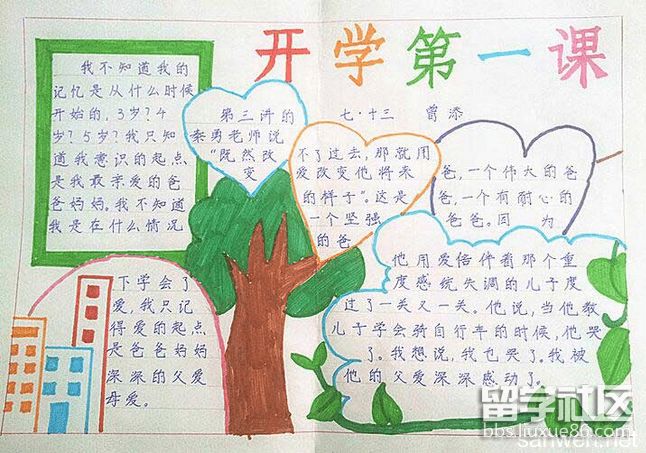 开学第一课
七·十三 曾添
我不知道我的
记忆是从什么时候
开始的,3岁?4
岁?5岁?我只知
道我意识的起点
是我最亲爱的爸
爸妈妈。我不知道
我是在什么情况
下学会了
爱,我只记
得爱的起点
是爸爸妈妈
深深的父爱
母爱。
第三讲的
秦勇老师说
“既然改
变
不了过去,那就用
爱改变他将来
的样子”。这是
一个坚强
的爸
爸,一个伟大的爸
爸,一个有耐心的
爸爸。因为
他用爱陪伴着那个重
度感统失调的儿子度
过了一关又一关。他说,当他教
儿子学会骑自行车的时候,他哭
了。我想说,我也哭了。我被
他的父爱深深感动了。
留学社区
bbs.liuxue86.com